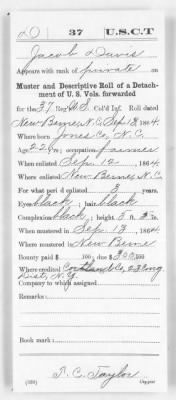 D | 37 | U.S.C.T
Jacob Davis
Appears with rank of private on
Muster and Descriptive Roll of a Detach-
ment of U. S. Vols. forwarded
for the 37 Reg't U.S. Col'd Inf. Roll dated
New Berne, N.C. Sep 18, 1864.
Where born Jones Co, N.C.
Age 22 y'rs; occupation farmer
When enlisted Sep. 12, 1864.
Where enlisted New Berne, N.C.
For what period enlisted 3 years.
Eyes black; hair black
Complexion black; height 5 ft. in.
When mustered in Sep. 13, 1864.
Where mustered in New Berne
Bounty paid $ 100; due $ 300 100
Where credited Cortland Co, 23 Cong
Dist, N.Y.
Company to which assigned
Remarks:
Book mark:
(339) Taylor
Copyist.